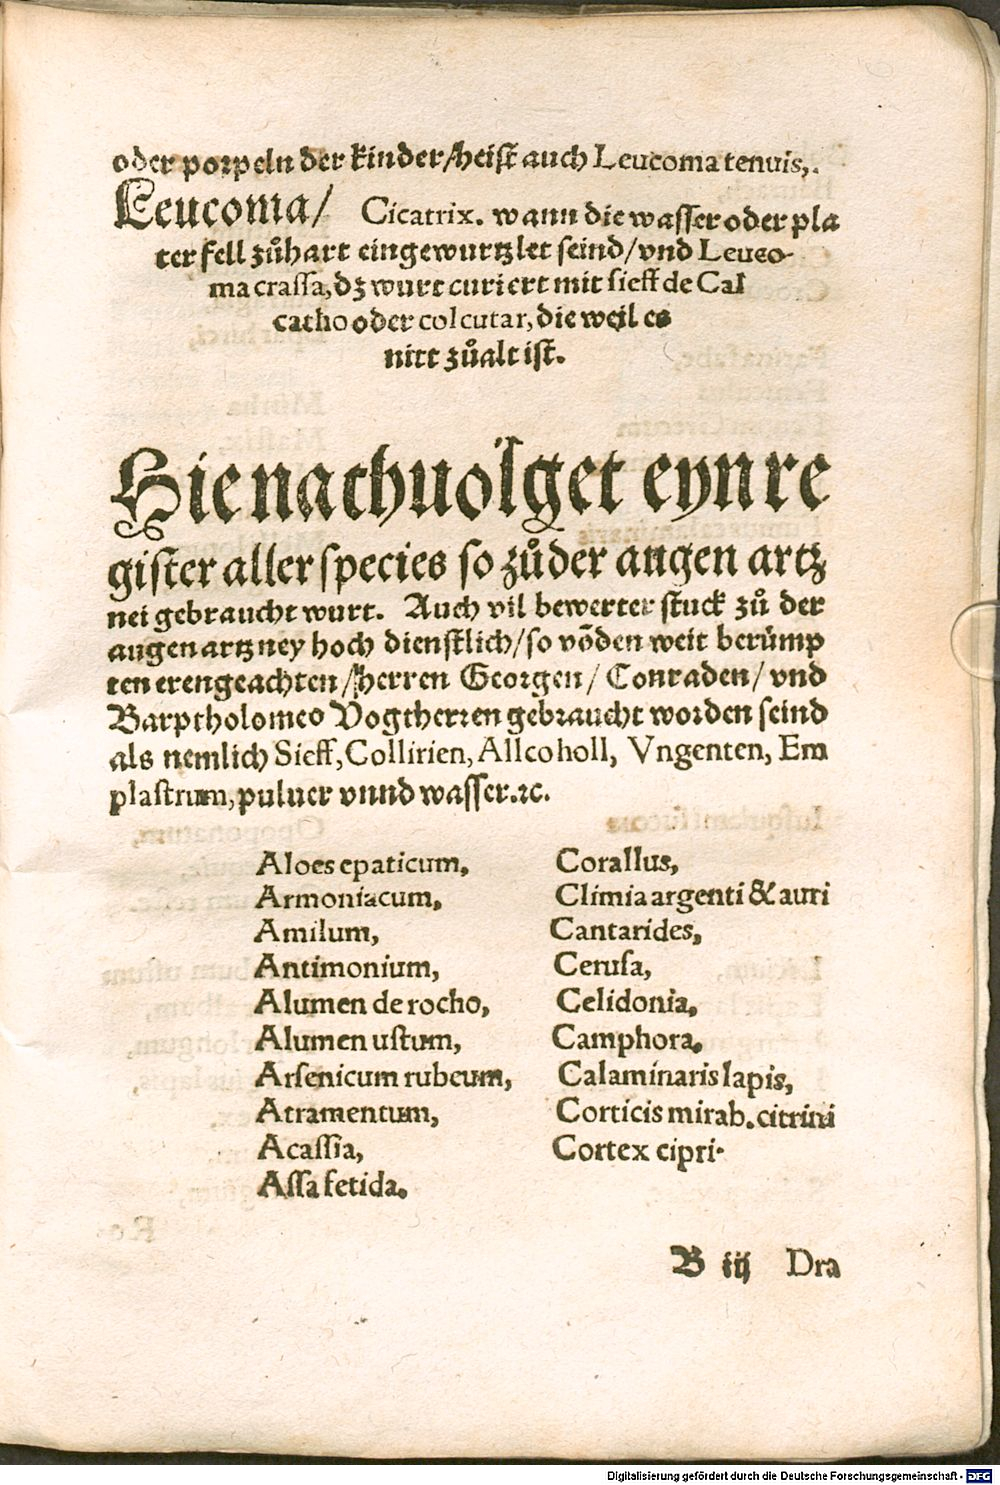 oder porpeln der kinder/heist auch Leucoma tenuis,.
Leucoma/ Cicatrix. wann die wasser oder pla
ter fell zůhart eingewurtzlet seind/vnd Leuco-
ma crassa, dz wurt curiert mit sieff de Cal
catho oder colcutar, die weil es
nitt zůalt ist.
Hie nachuolget eyn re
gister aller species so zůder augen artz
nei gebraucht wurt. Auch vil bewerter stuck zů der
augen artzney hoch dienstlich/so võden weit berümp
ten erengeachten/herren Georgen/ Conraden/ vnd
Barptholomeo Vogtherren gebraucht worden seind
als nemlich Sieff, Collirien, Allcoholl, Vngenten, Em
plastrum, puluer vnnd wasser.⁊c.
Aloes epaticum,
Armoniacum,
Amilum,
Antimonium,
Alumen de rocho,
Alumen ustum,
Arsenicum rubeum,
Atramentum,
Acassia,
Assa fetida.
Corallus,
Climia argenti & auri
Cantarides,
Cerusa,
Celidonia,
Camphora,
Calaminaris lapis,
Corticis mirab. citrini
Cortex cipri.
B iij Dra
Digitalisierung gefördert durch die Deutsche Forschungsgemeinschaft - DFG